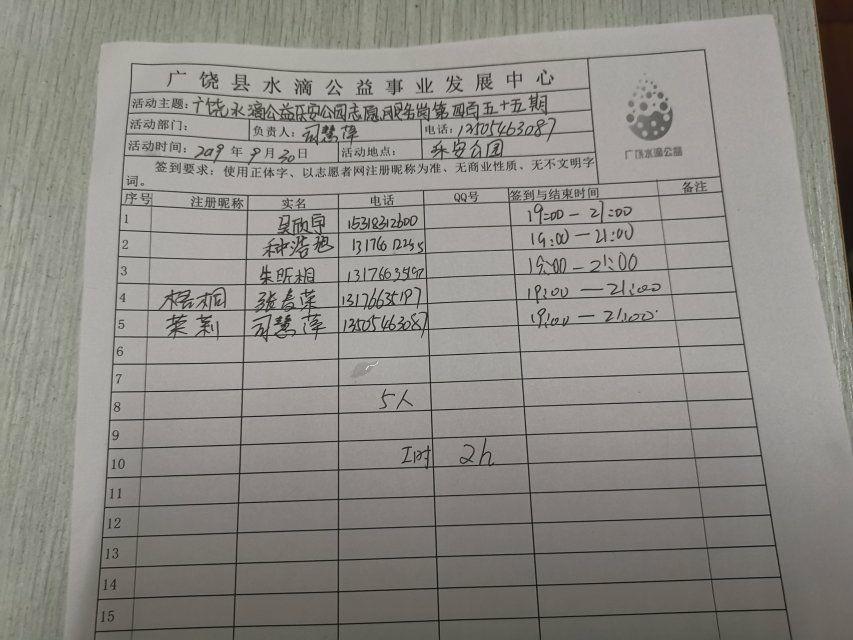 广饶县水滴公益事业发展中心
活动主题：广饶水滴公益乐安公园志愿服务岗第四百五十五期
活动部门： 负责人：司慧萍 电话：13505463087
活动时间：2019年9月30日 活动地点：乐安公园
签到要求：使用正体字、以志愿者网注册昵称为准、无商业性质、无不文明字
词。
广饶水滴公益
序号 注册昵称 实名 电话 QQ号 签到与结束时间 备注
1 吴欣宇 15318312600 19:00-21:00
2 种浩 19:00-21:00
3 朱昕桐 19:00-21:00
4 梧桐 张春荣 13176635197 19:00-21:00
5 茉莉 司慧萍 13505463087 19:00-21:00
6
7
8 5人
9
10 工时 2h
11
12
13
14
15